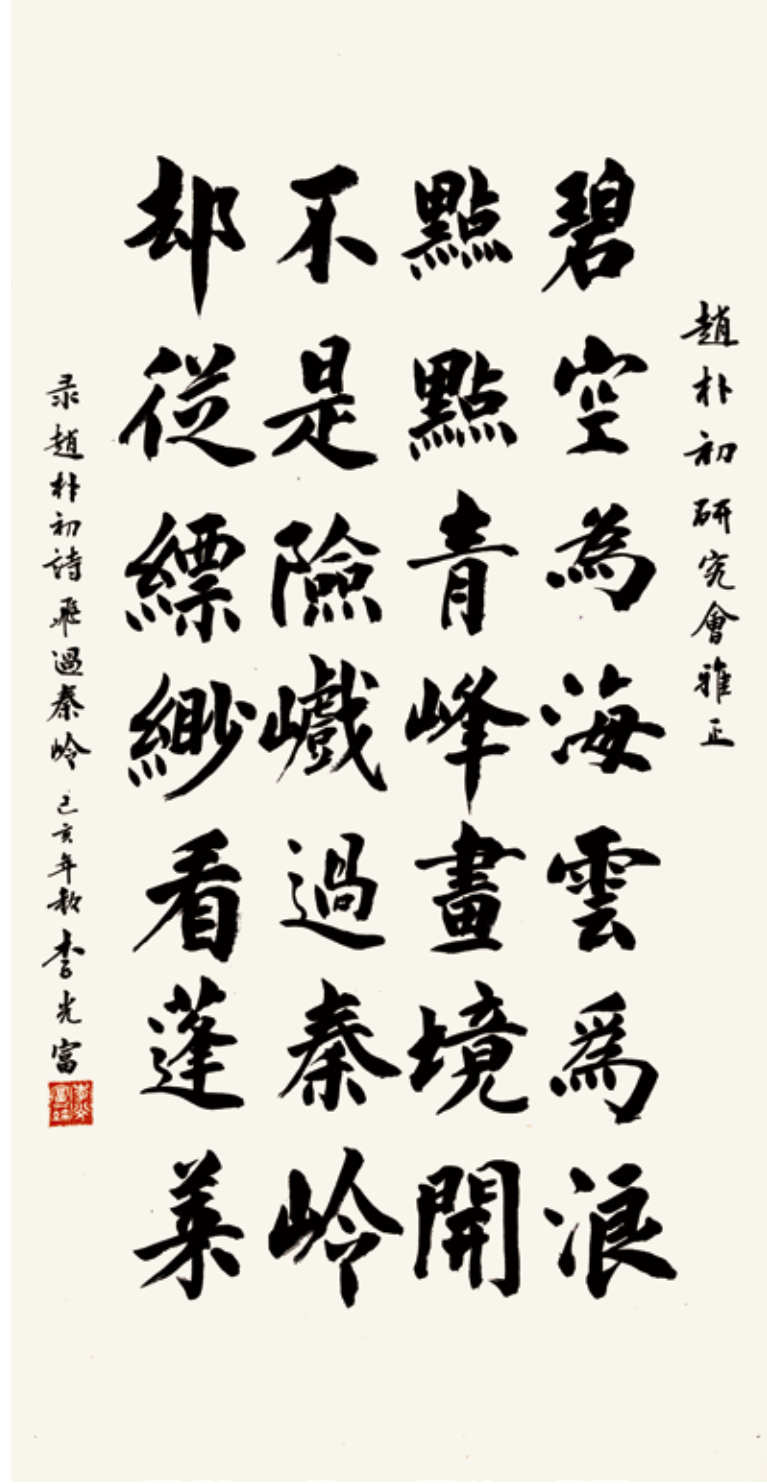 趙朴初研究會雅正
碧空為海雲為浪
點點青峰畫境開
不是險巇過秦岭
却從縹緲看蓬萊
录趙朴初詩飛過秦岭己亥年秋李光富